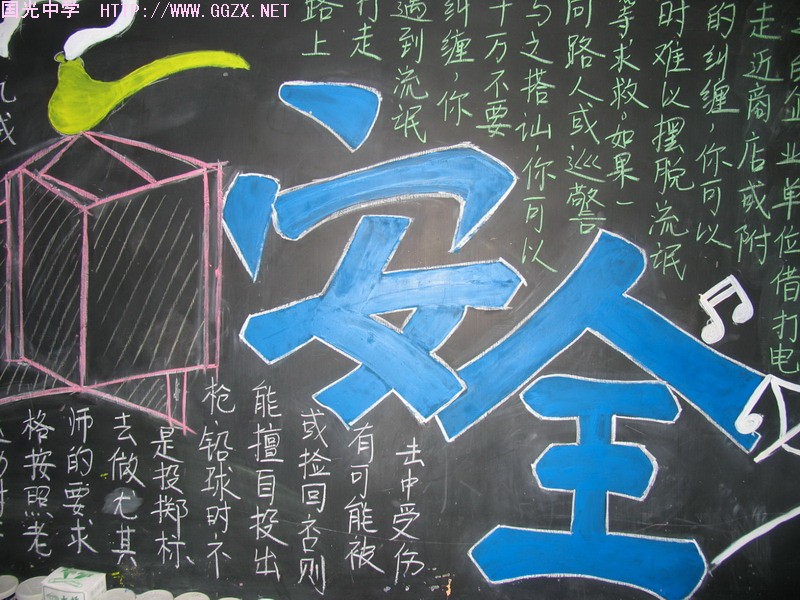 国光中学 HTTP://WWW.GGZX.NET
安全
的企业单位借打电
走近商店或附
的纠缠,你可以
时难以摆脱流氓
等求救,如果一
同路人或巡警
与之搭讪,你可以
千万不要
纠缠,你
遇到流氓
打走
路上
击中受伤
有可能被
或捡回否则
能擅自投出
枪、铅球时不
是投掷标
去做尤其
师的要求
格按照老